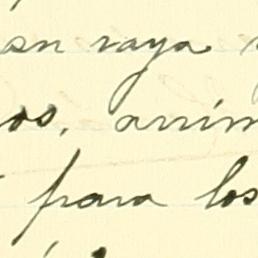 en raya
os, arrim
para los